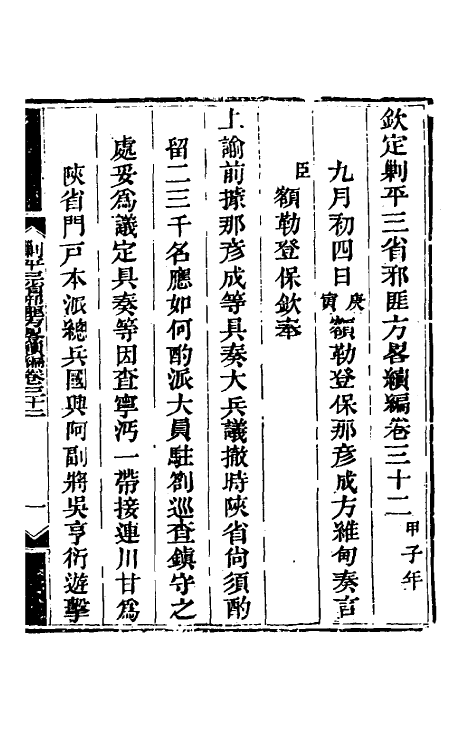 欽定剿平三省邪匪方畧續編卷三十二 甲子年
九月初四日庚寅額勒登保那彥成方維甸奏言
臣額勒登保欽奉
上諭前據那彥成等具奏大兵議撤時陝省尙須酌
留二三千名應如何酌派大員駐劄巡查鎮守之
處妥爲議定具奏等因查寧沔一帶接連川甘爲
陝省門戸本派總兵國興阿副將吳亨衍遊擊
剿平三省邪匪方畧續編卷三十二 一